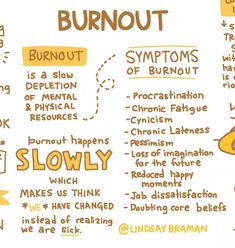 BURNOUT
BURNOUT
is a SLOW
DEPLETION
OF MENTAL
& PHYSICAL
RESOURCES
burnout happens
SLOWLY
WHICH
MAKES US THINK
*WE* HAVE CHANGED
instead of realizing
we are SICK.
SYMPTOMS
OF BURNOUT
- Procrastination
- Chronic Fatigue
- Cynicism
- Chronic Lateness
- Pessimism
- Loss of imagination
for the future
- Reduced happy
moments
- Job dissatisfaction
- Doubting core beliefs
@LINDSAY BRAMAN